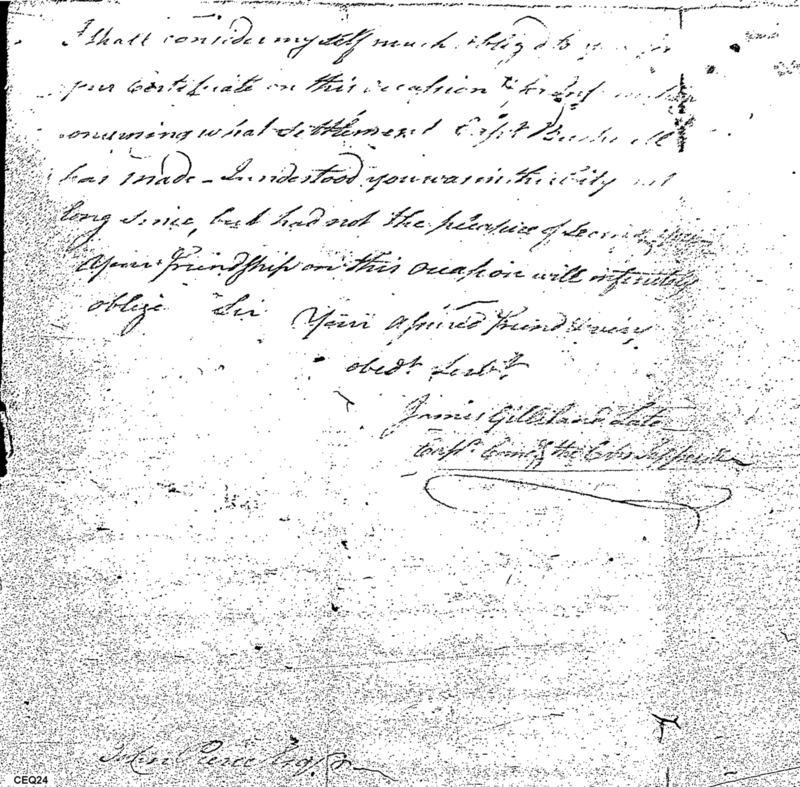 I shall consider my self much obligd to you for
your Certificate on this occasion
what settlement Capt Bushnell
has made - I understood you was in this City not
long since, but had not the pleasure of seeing you
your Friendship on this occasion will infinitely
oblige Sir Your assured Friend & very
obedt Servt
James Gilliland Late
Capt. Comg the Corps Sappers &
John Pierce Esqr
CEQ24